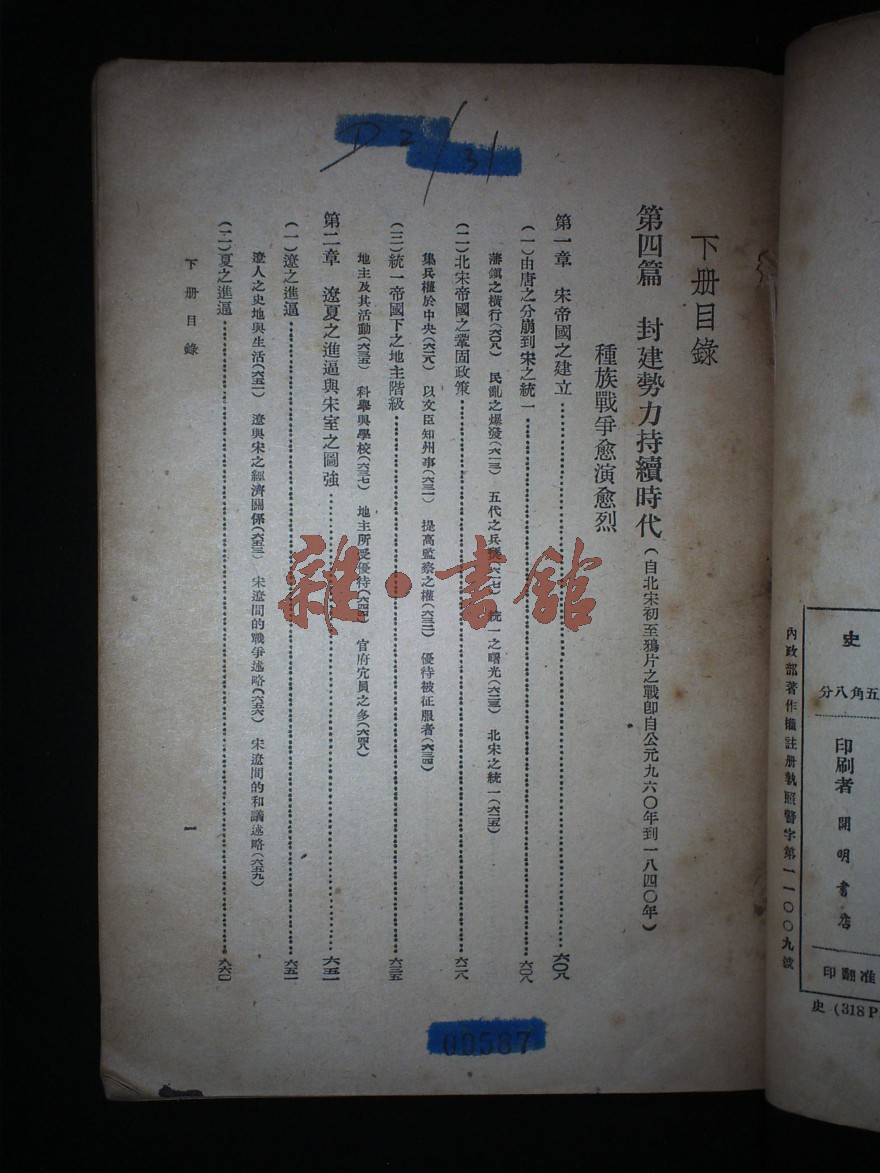 D2/31
下册目錄
第四篇　封建勢力持續時代（自北宋初至鴉片之戰卽自公元九六〇年到一八四〇年）
種族戰爭愈演愈烈
第一章　宋帝國之建立……六〇八
（一）由唐之分崩到宋之統一……六〇八
藩鎮之橫行（六〇八）　民亂之爆發（六一三）　五代之兵　統一之曙光（六二三）　北宋之統一（六二五）
（二）北宋帝國之鞏固政策……六二八
集兵權於中央（六二九）　以文臣知州事（六三一）　提高監察之權（六三二）　優待被征服者（六三四）
（三）統一帝國下之地主階級……六三五
地主及其活動（六三五）　科舉與學校（六三七）　地主所受優待　官府宂員之多（六四八）
第二章　遼夏之進逼與宋室之圖強……六五一
（一）遼之進逼……六五一
遼人之史地與生活（六五一）　遼與宋之經濟關係（六五三）　宋遼間的戰爭述略（六五六）　宋遼間的和議述略（六五九）
（二）夏之進逼
下册目錄
一
00587
雜·書館
史
五角八分
印刷者　開明書店
准翻印
內政部著作權註册執照警字第一一〇〇九號
史（318P